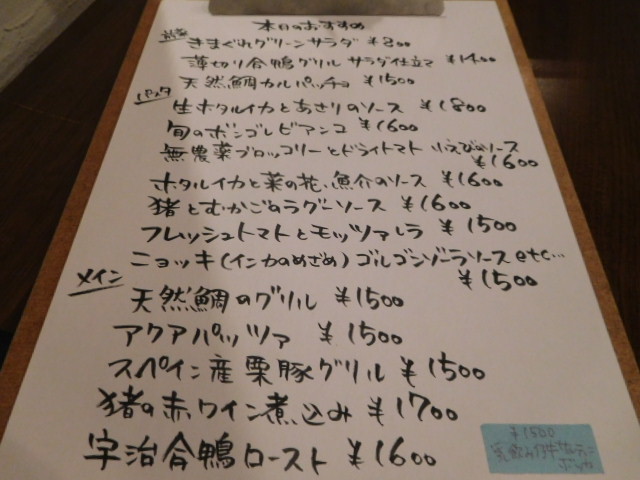 本日のおすすめ
前菜
きまぐれグリーンサラダ ¥800
薄切り合鴨グリル サラダ仕立て ¥1400
天然鯛カルパッチョ ¥1500
パスタ
生ホタルイカとあさりのソース ¥1800
旬のボンゴレビアンコ ¥1600
無農薬ブロッコリーとドライトマト 小えびのソース
¥1600
ホタルイカと菜の花、魚介のソース ¥1600
猪とむかごのラグーソース ¥1600
フレッシュトマトとモッツァレラ ¥1500
ニョッキ(インカのめざめ)ゴルゴンゾーラソース etc...
¥1500
メイン
天然鯛のグリル ¥1500
アクアパッツァ ¥1500
スペイン産栗豚グリル ¥1500
猪の赤ワイン煮込み ¥1700
宇治合鴨ロースト ¥1600
¥1500
乳飲み仔牛サルティン
ボッカ